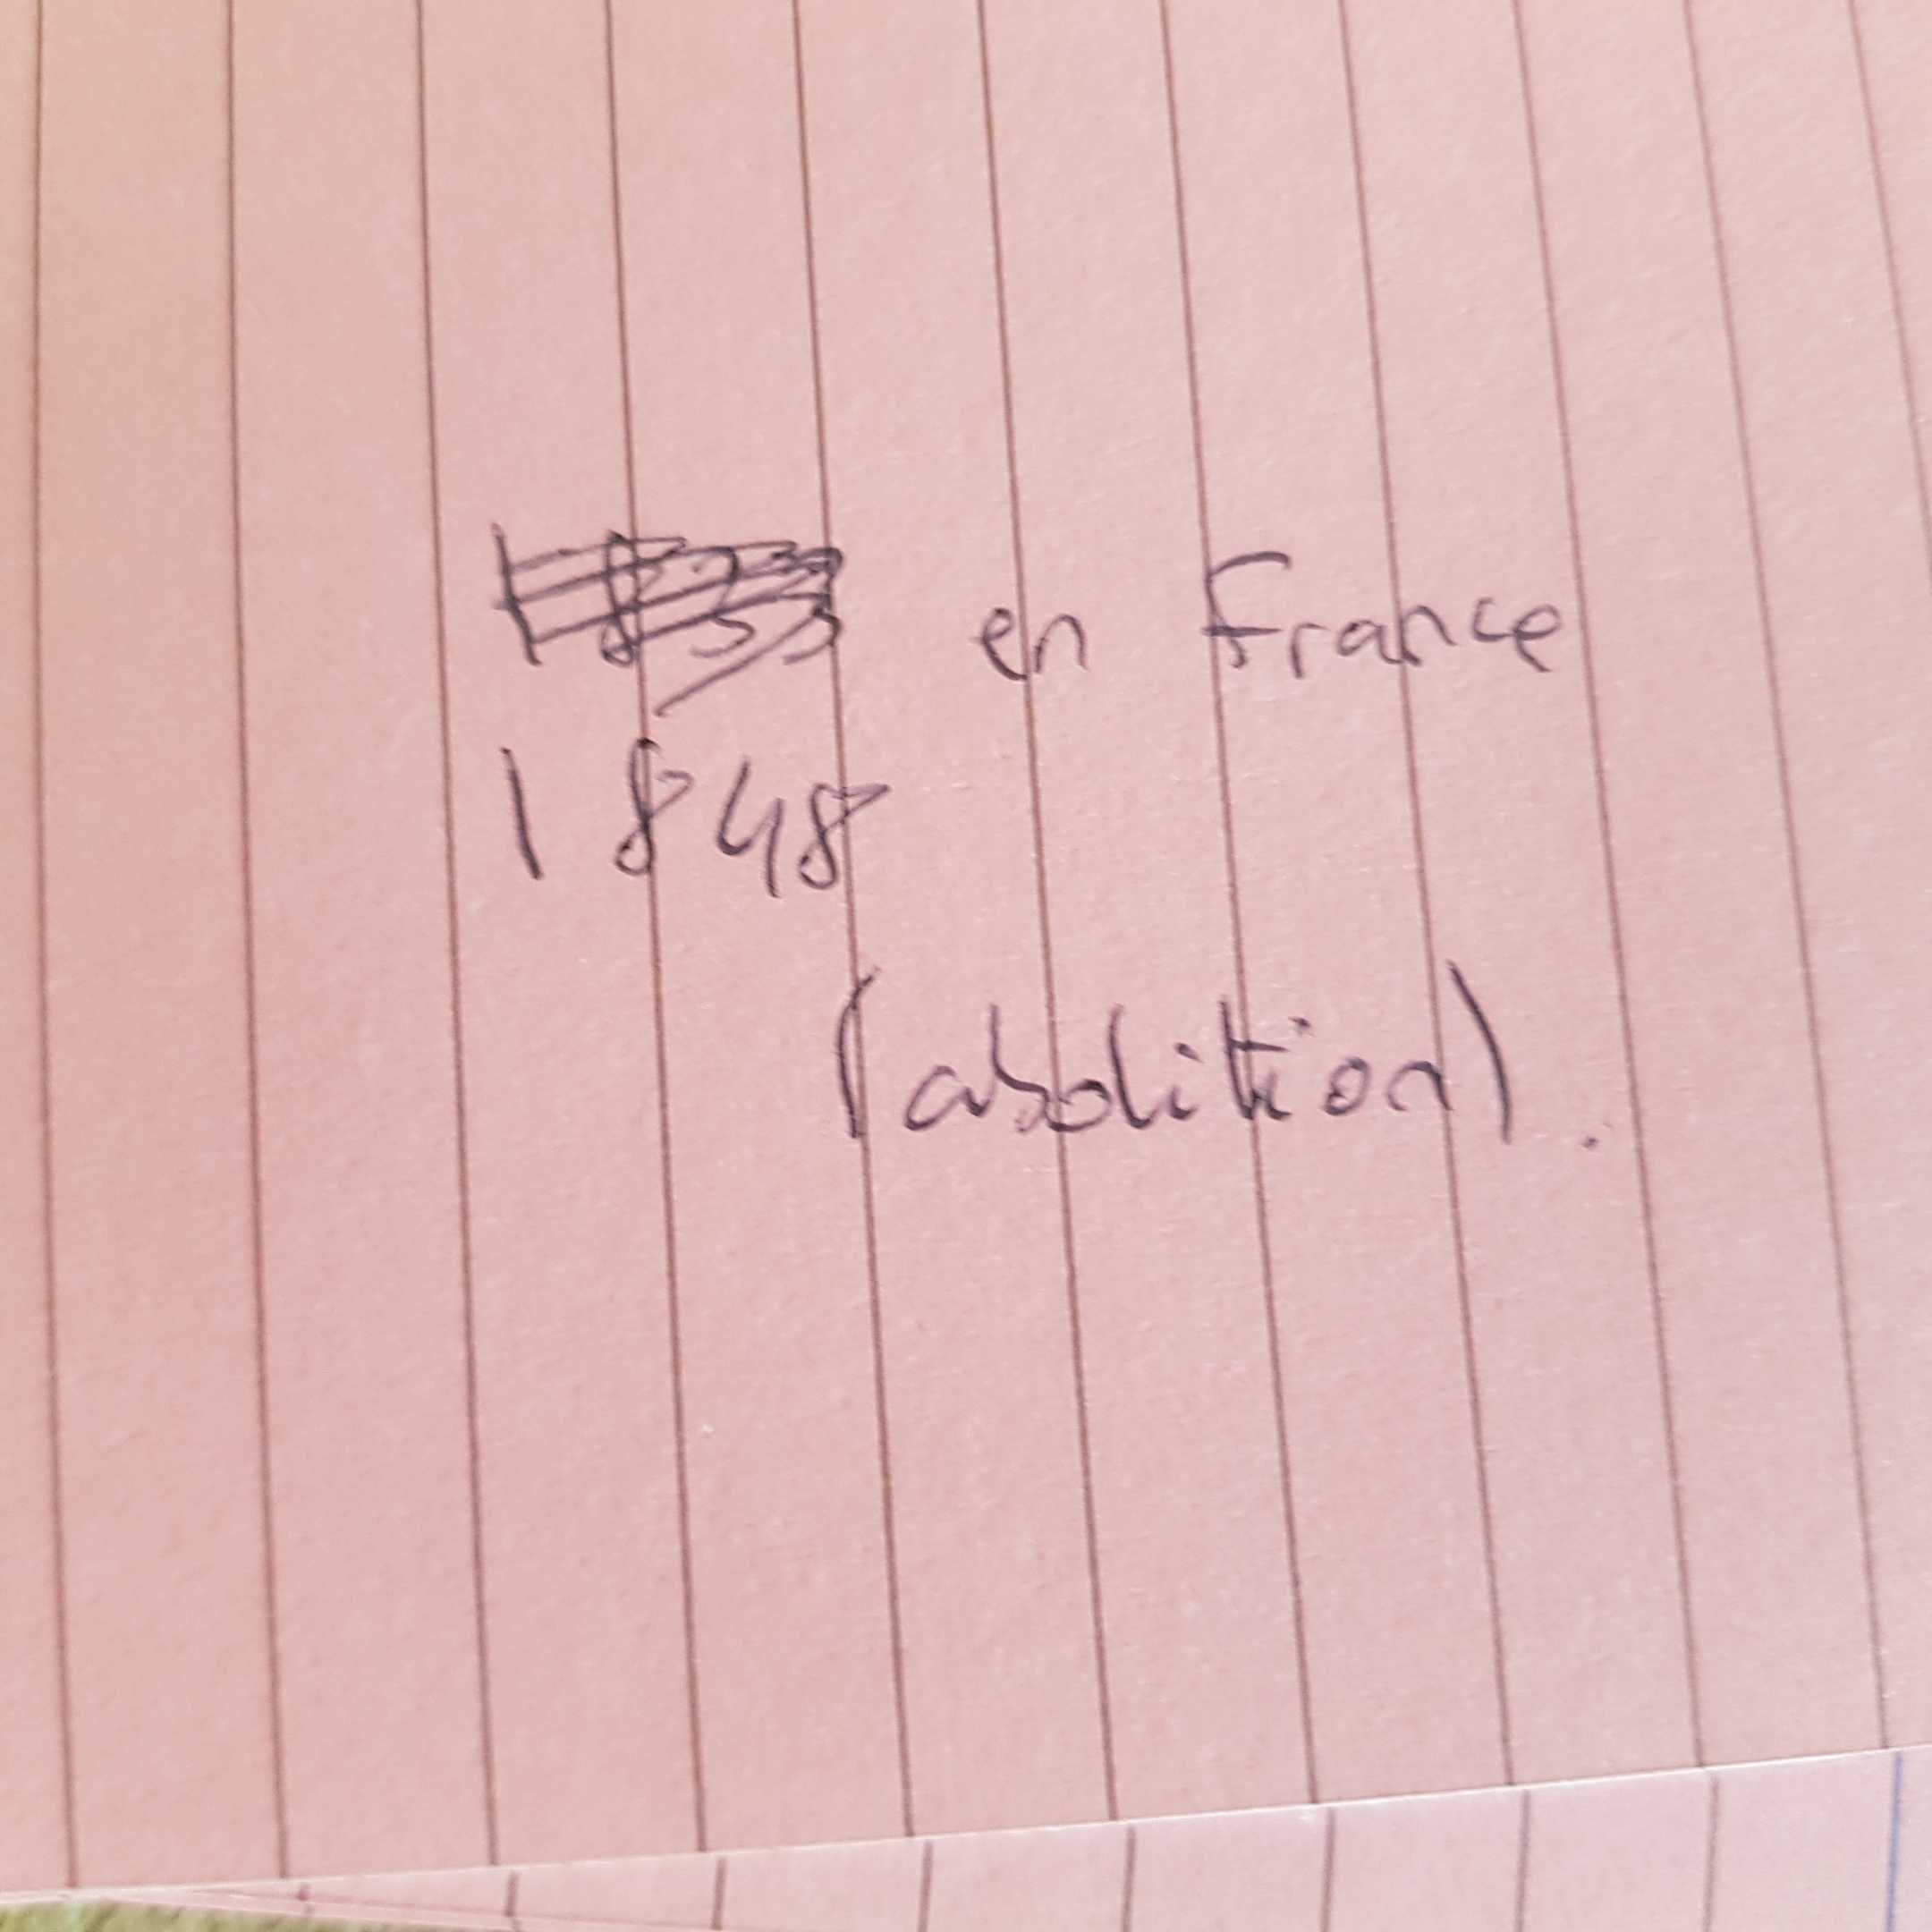 en France
1848
(abolition).